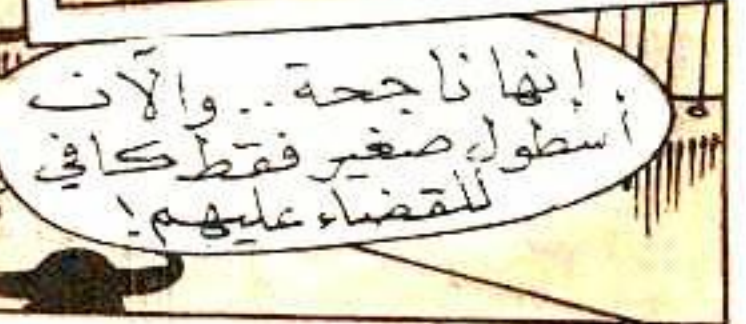 إنها ناجحة.. والآن
أسطول صغير فقط كافي
للقضاء عليهم!